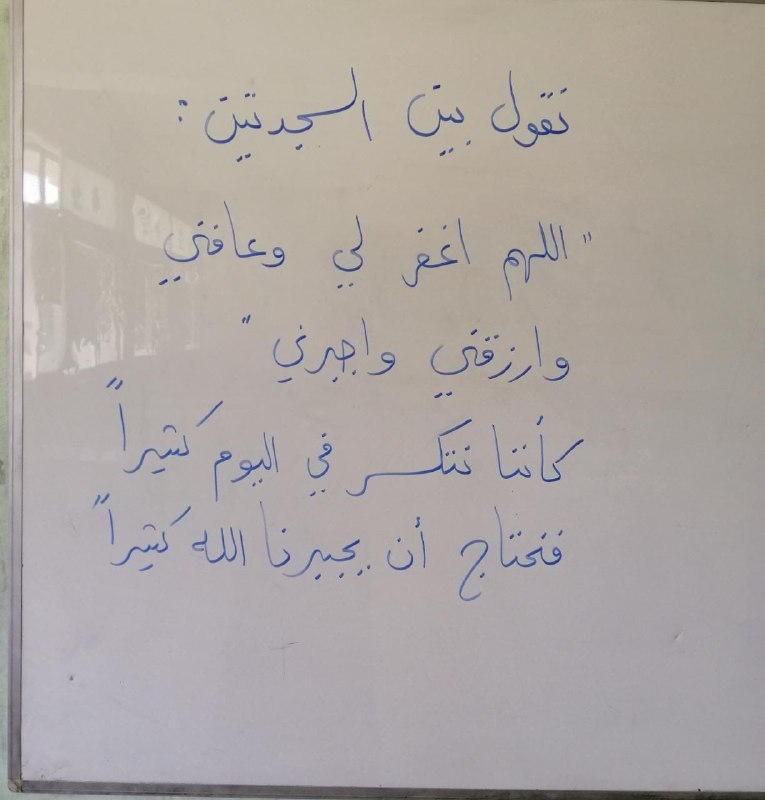 نقول بين السجدتين :
" اللهم اغفر لي وعافني
وارزقني واجبرني "
كأننا نتكسر في اليوم كثيراً
فنحتاج أن يجبرنا الله كثيراً